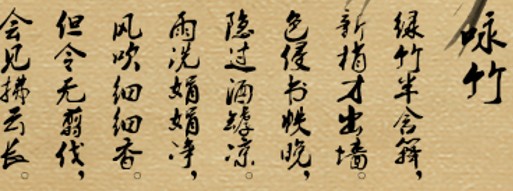 咏竹
绿竹半含箨，
新梢才出墙。
色侵书帙晚，
隐过酒罅凉。
雨洗娟娟净，
风吹细细香。
但令无剪伐，
会见拂云长。